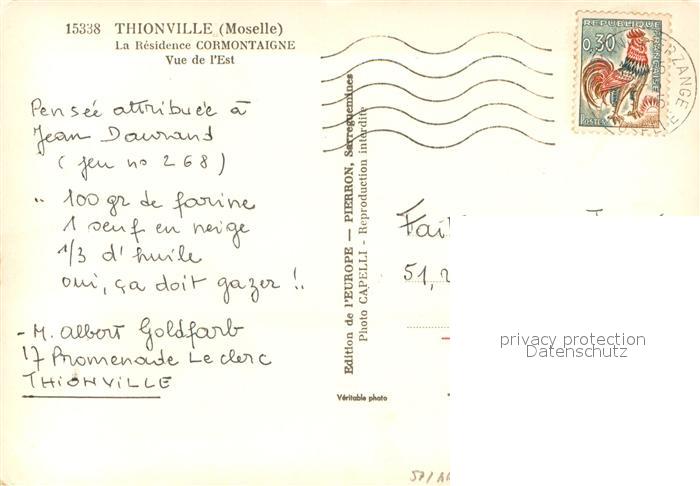 15338 THIONVILLE (Moselle)
La Résidence CORMONTAIGNE
Vue de l'Est
Pensée attribuée à
Jean Daurand
(jeu no 268)
" 100 gr de farine
1 oeuf en neige
1/3 d'huile
oui, ça doit gazer !!
- M. albert Goldfarb
17 Promenade Leclerc
THiONViLLE
Edition de l'EUROPE — PIERRON, Sarreguemines
Photo CAPELLI - Reproduction interdite
Véritable photo
REPUBLIQUE
FRANÇAISE
0,30
POSTES
MOSELLE
51,
privacy protection
Datenschutz